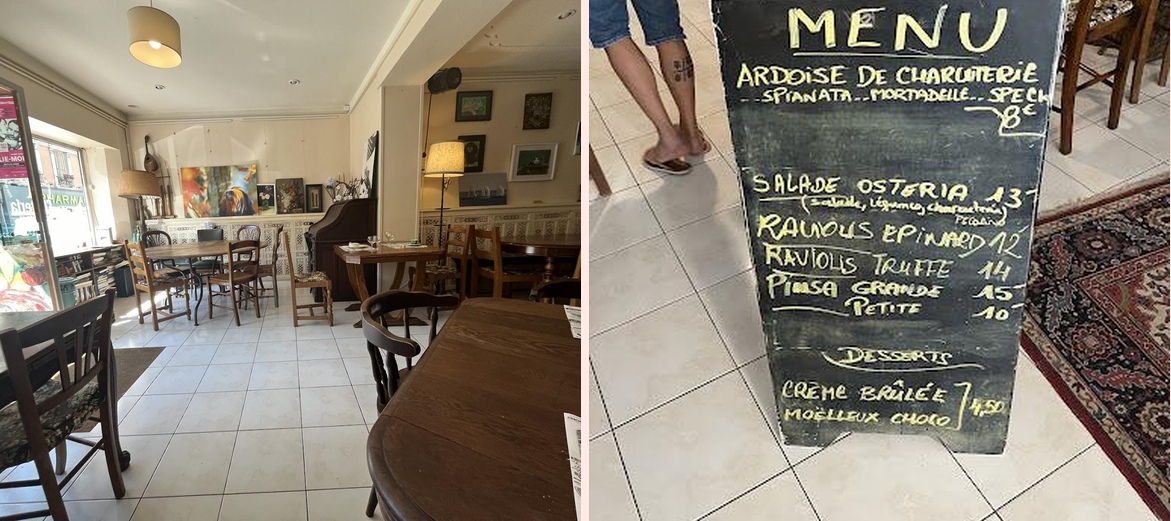 LIE-MO
MENU
ARDOISE DE CHARCUTERIE
SPIANATA..MORTADELLE..SPECK
8€
SALADE OSTERIA 13
(salade, légumes, charcuterie)
Pecorino
RAVIOLIS EPINARD 12
RAVIOLIS TRUFFE 14
PINSA GRANDE 15
PETITE 10
DESSERTS
CRÈME BRÛLÉE
4,50
MOËLLEUX CHOCO